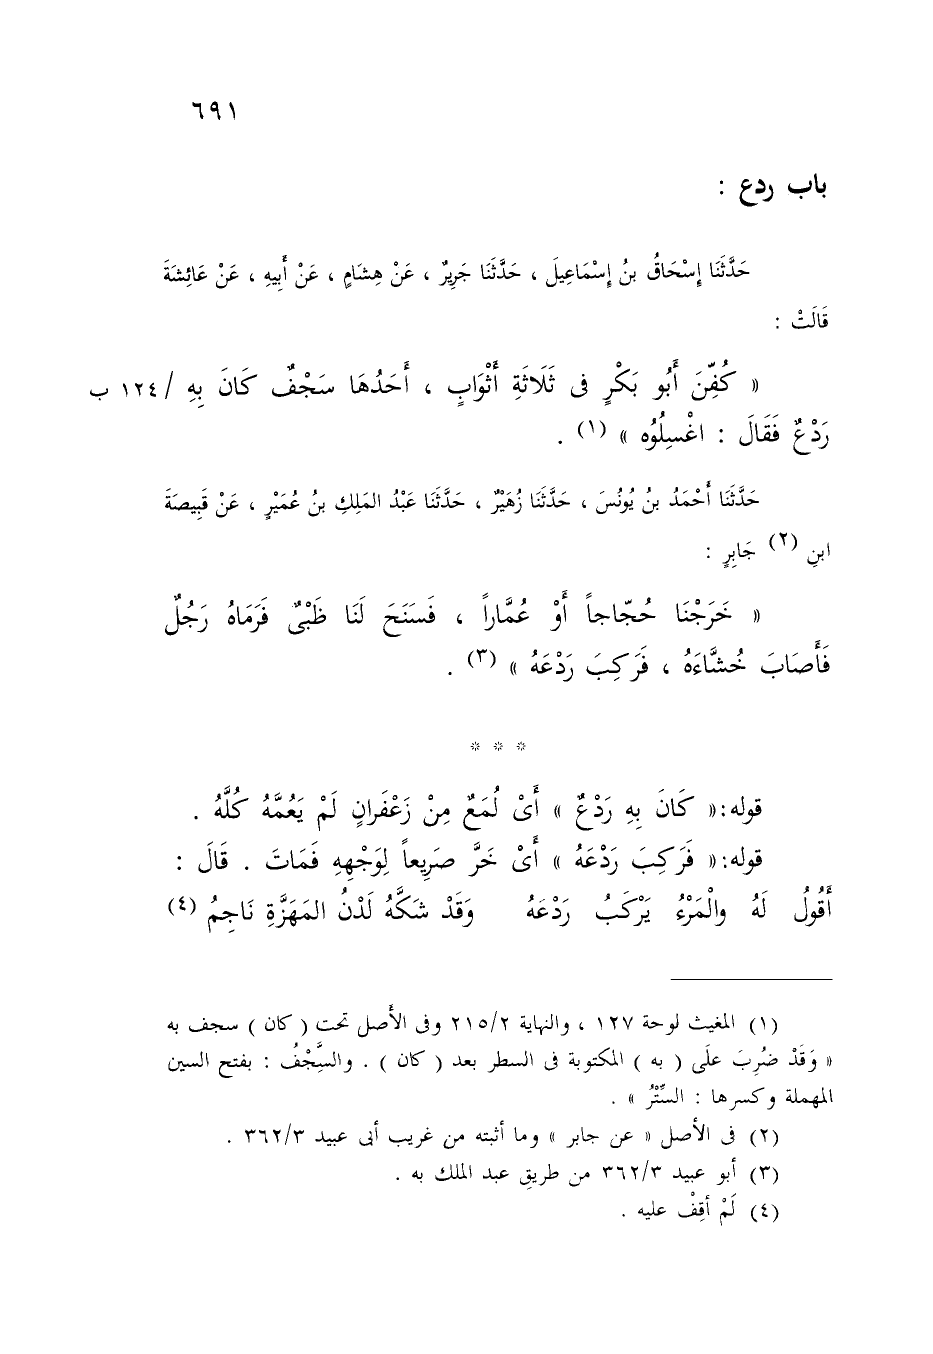 ٦٩١
باب ردع :
حَدَّثَنَا إِسْحَاقُ بنُ إِسْمَاعِيلَ ، حَدَّثَنَا جَرِيرٌ ، عَنْ هِشَامٍ ، عَنْ أَبِيهِ ، عَنْ عَائِشَةَ
قَالَتْ :
« كُفِّنَ أَبُو بَكْرٍ فى ثَلَاثَةِ أَثْوَابٍ ، أَحَدُهَا سَجْفٌ كَانَ بِهِ / ١٢٤ ب
رَدْعٌ فَقَالَ : اغْسِلُوُه » (١) .
حَدَّثَنَا أَحْمَدُ بنُ يُونُسَ ، حَدَّثَنَا زُهَيْرٌ ، حَدَّثَنَا عَبْدُ المَلِكِ بنُ عُمَيْرٍ ، عَنْ قَبِيصَةَ
ابنِ (٢) جَابِرٍ :
« خَرَجْنَا حُجّاجاً أَوْ عُمَّاراً ، فَسَنَحَ لَنَا ظَبْىٌ فَرَمَاهُ رَجُلٌ
فَأَصَابَ خُشَّاءَهُ ، فَرَكِبَ رَدْعَهُ » (٣) .
* * *
قوله: « كَانَ بِهِ رَدْعٌ » أَىْ لُمَعٌ مِنْ زَعْفَرانٍ لَمْ يَعُمَّهُ كُلَّهُ .
قوله: « فَرَكِبَ رَدْعَهُ » أَىْ خَرَّ صَرِيعاً لِوَجْهِهِ فَمَاتَ . قَالَ :
أَقُولُ لَهُ والْمَرْءُ يَرْكَبُ رَدْعَهُ وَقَدْ شَكَّهُ لَدْنُ المَهَزَّةِ نَاجِمُ (٤)
(١) المغيث لوحة ١٢٧ ، والنهاية ٢١٥/٢ وفى الأَصل تحت ( كان ) سجف به
« وَقَدْ ضُرِبَ علَى ( به ) المكتوبة فى السطر بعد ( كان ) . والسَّجْفُ : بفتح السين
المهملة وكسرها : السِّتْرُ » .
(٢) فى الأصل « عن جابر » وما أثبته من غريب أبى عبيد ٣٦٢/٣ .
(٣) أبو عبيد ٣٦٢/٣ من طريقِ عبد الملك به .
(٤) لَمْ أقِفْ عليه .